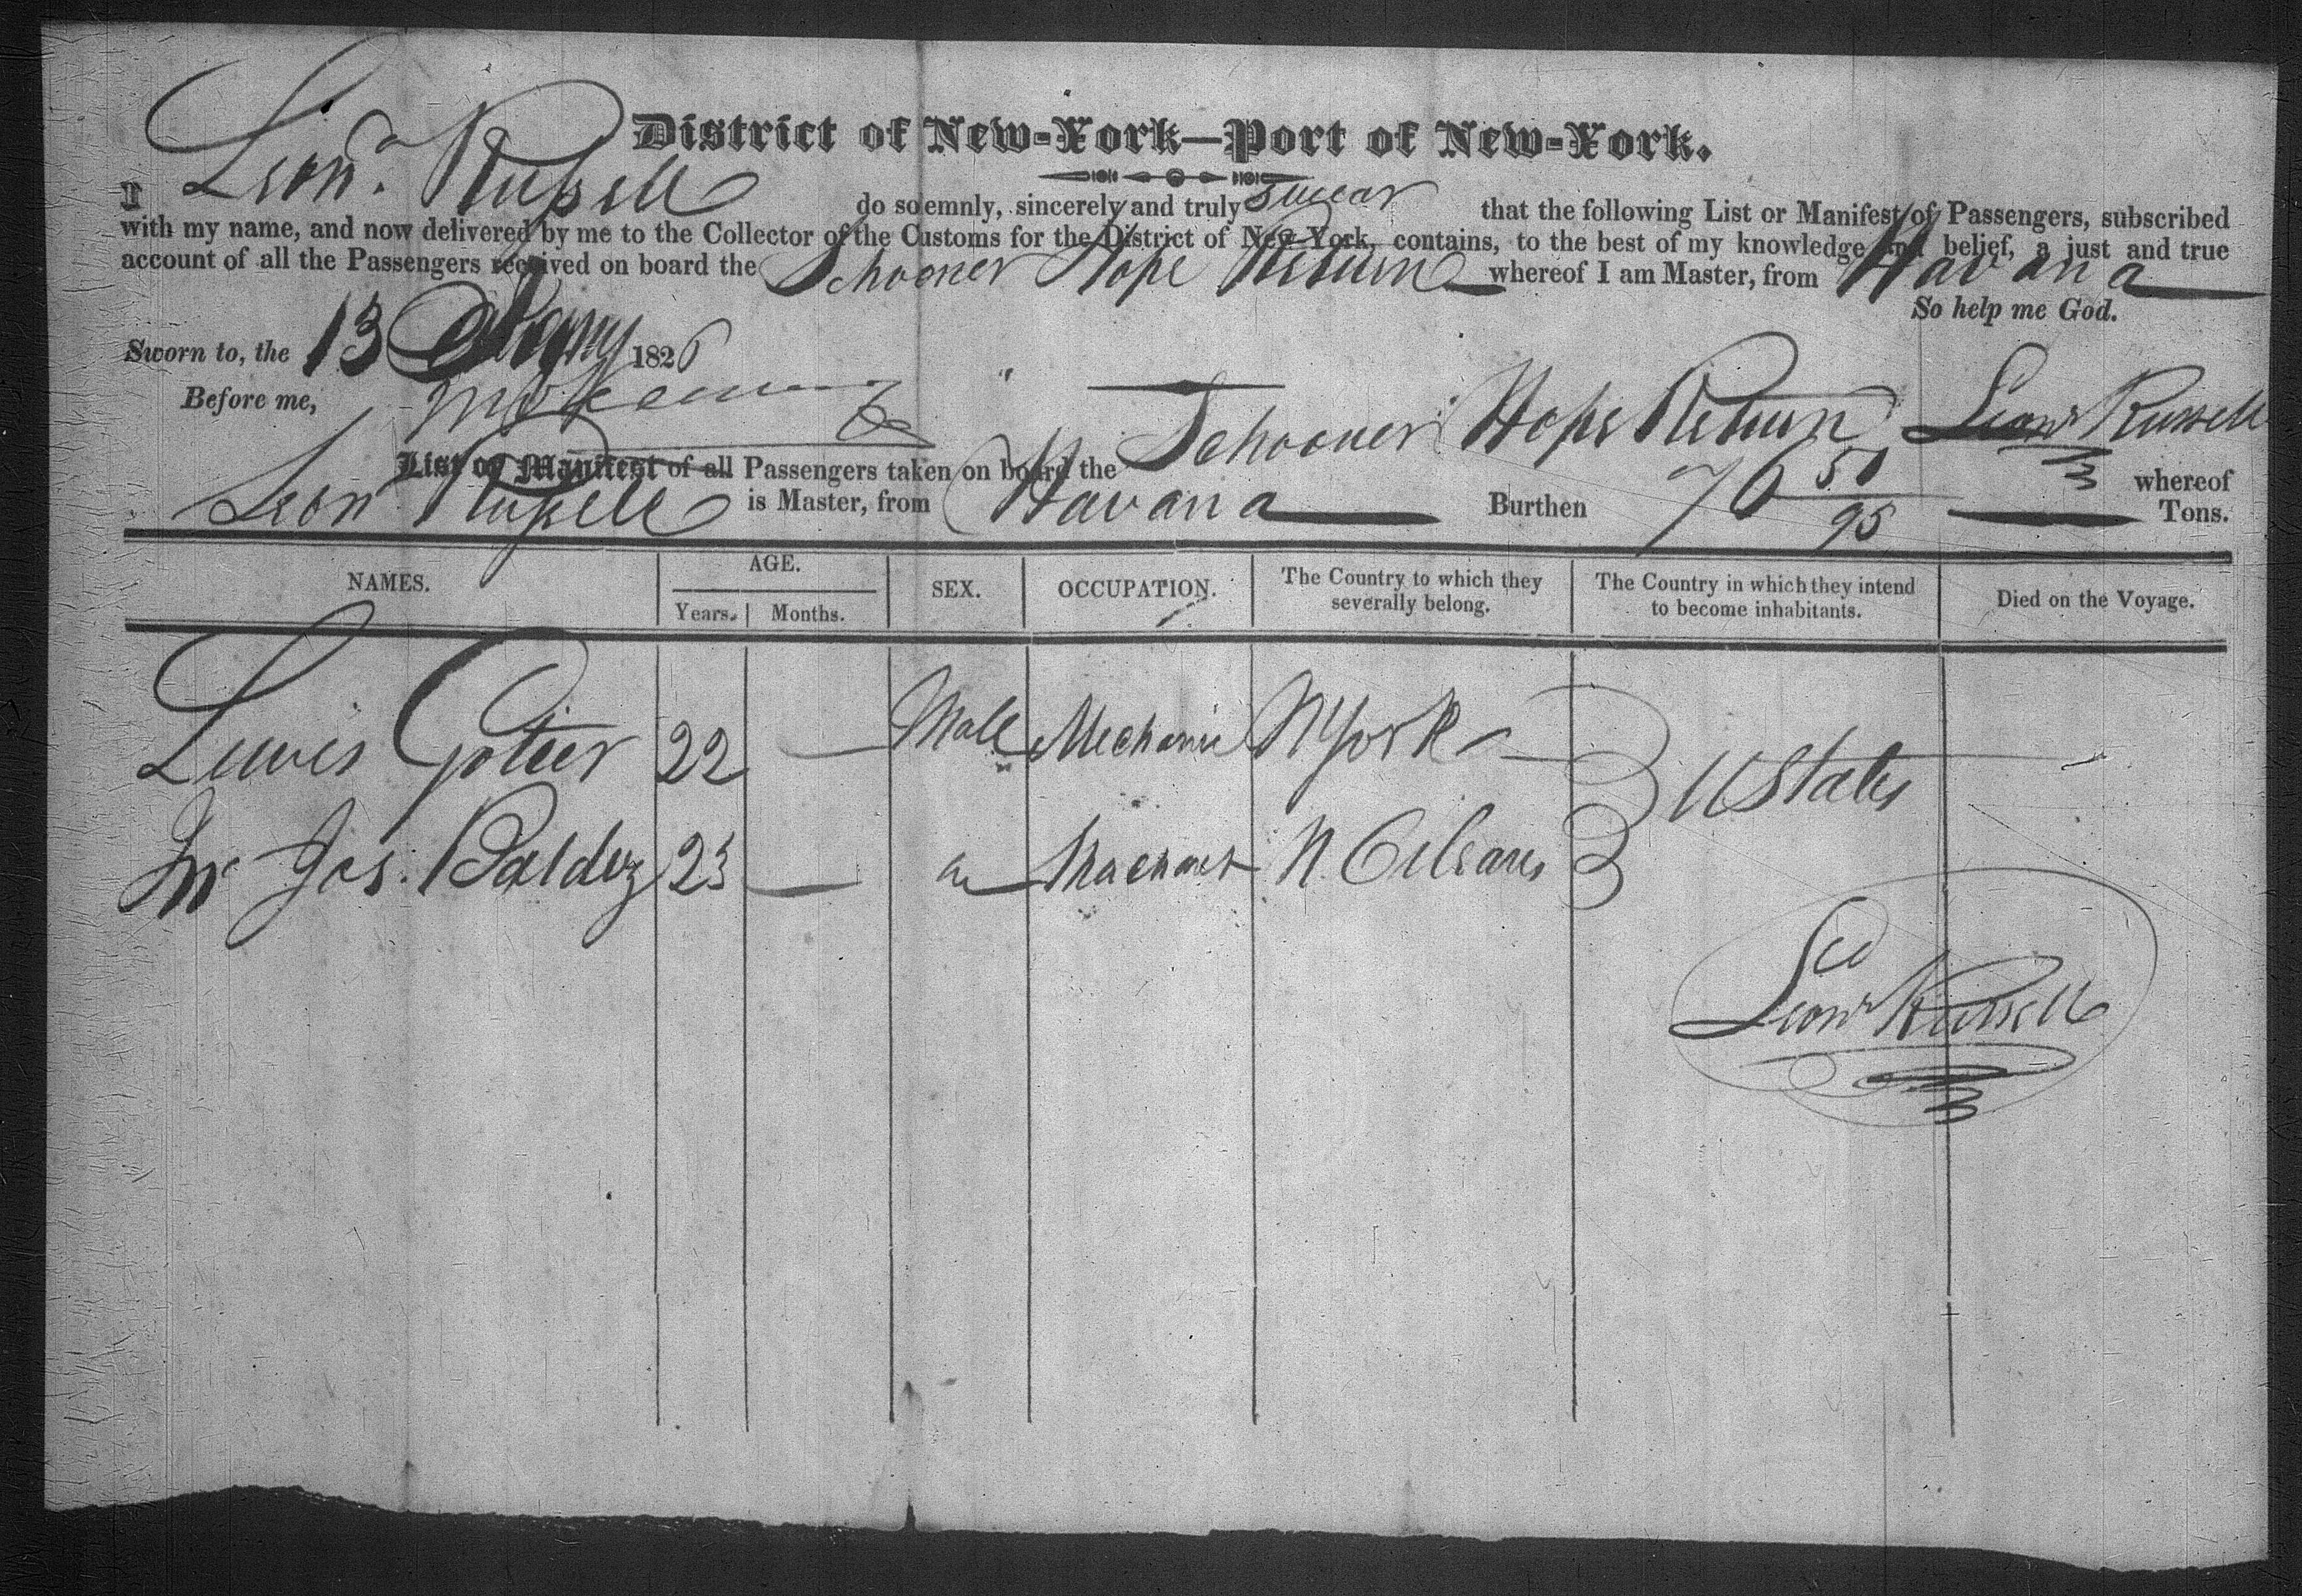 District of New-York—Port of New-York.
I Leon. Russell do solemnly, sincerely and truly swear that the following List or Manifest of Passengers, subscribed
with my name, and now delivered by me to the Collector of the Customs for the District of New-York, contains, to the best of my knowledge and belief, a just and true
account of all the Passengers received on board the Schooner Hope Return whereof I am Master, from Havana
So help me God.
Sworn to, the 13 1826
Before me,
Leond Russell
List or Manifest of all Passengers taken on board the Schooner Hope Return whereof
Leon Russell is Master, from Havana Burthen 76 50/95 Tons.
NAMES. AGE. SEX. OCCUPATION. The Country to which they severally belong. The Country in which they intend to become inhabitants. Died on the Voyage.
Years. Months.
Lewis 22 — Male Mechanic N York
U States
Mr Jos. Baldez 23 — N. Orleans
Leond Russell